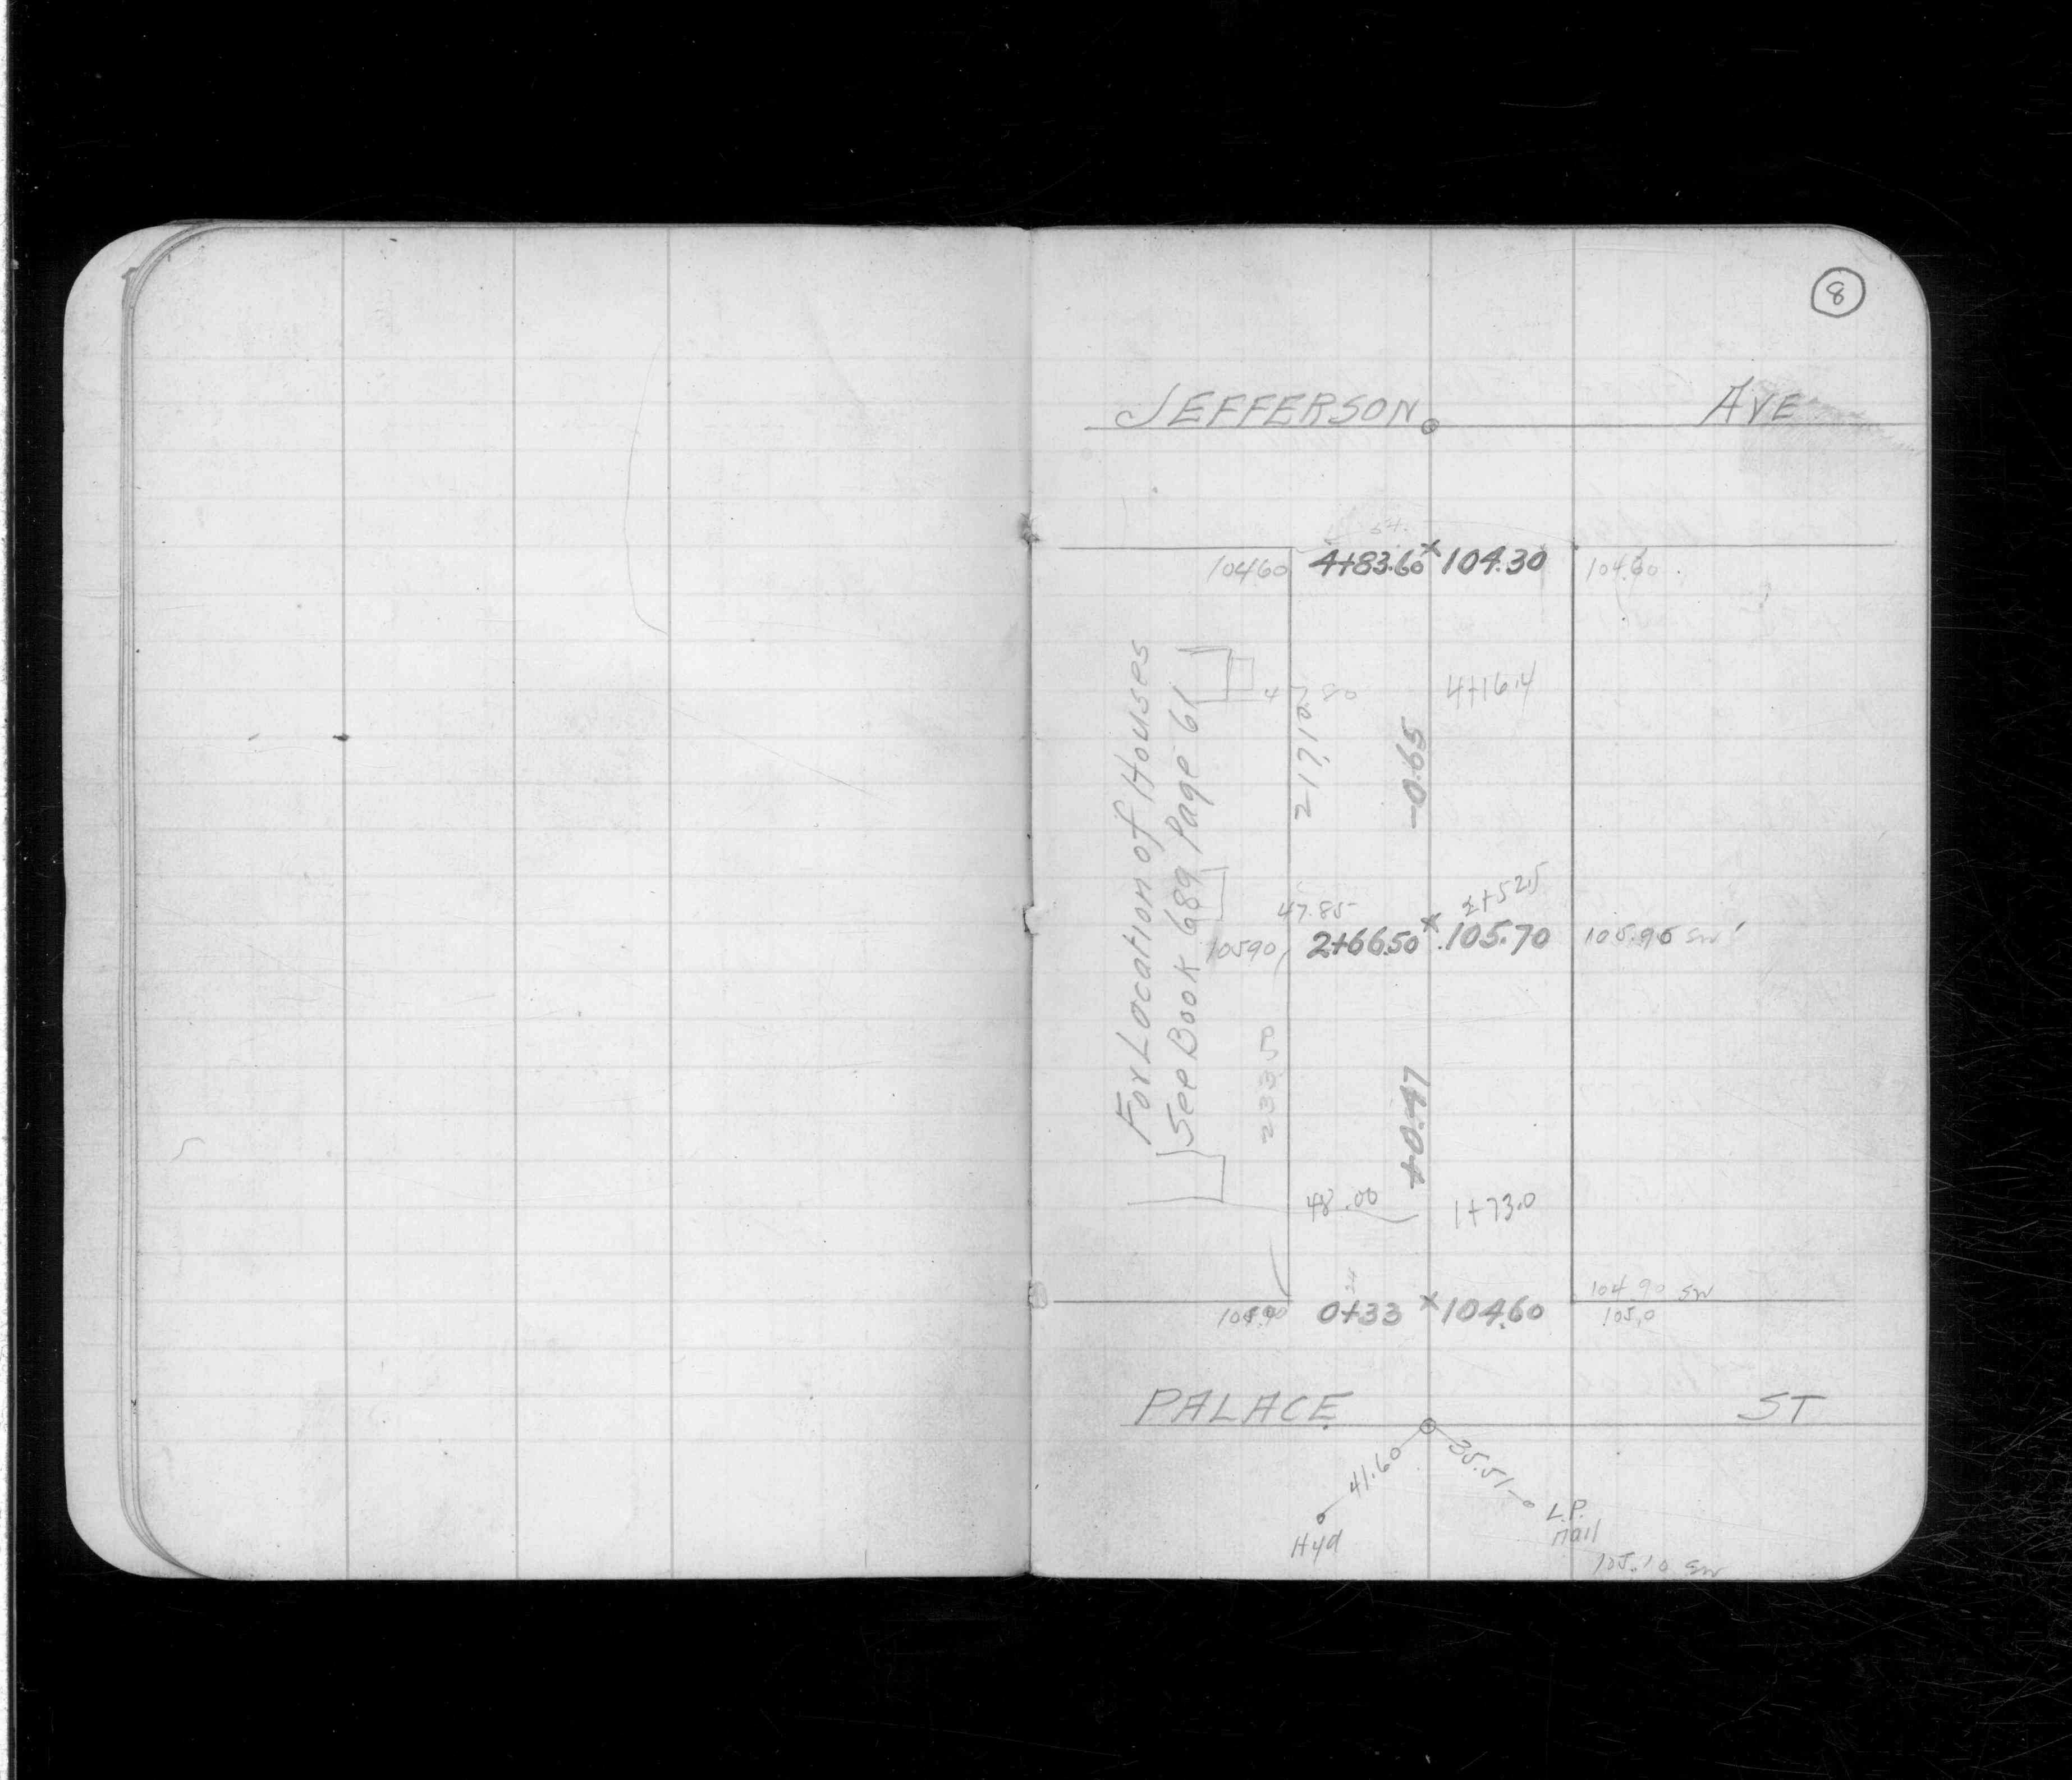 8
JEFFERSON AVE
54.
10460 4+83.60 104.30 104.60
4+16.4
217.10
-0.65
For Location of Houses
See Book 689 Page 61
47.85 2+52.5
10590 2+66.50 105.70 105.95 SW
233.50
+0.47
48.00 1+73.0
24
104.90 SW
0+33 104.60 105.0
PALACE ST
41.60 35.51
Hyd
L.P.
nail
105.10 SW